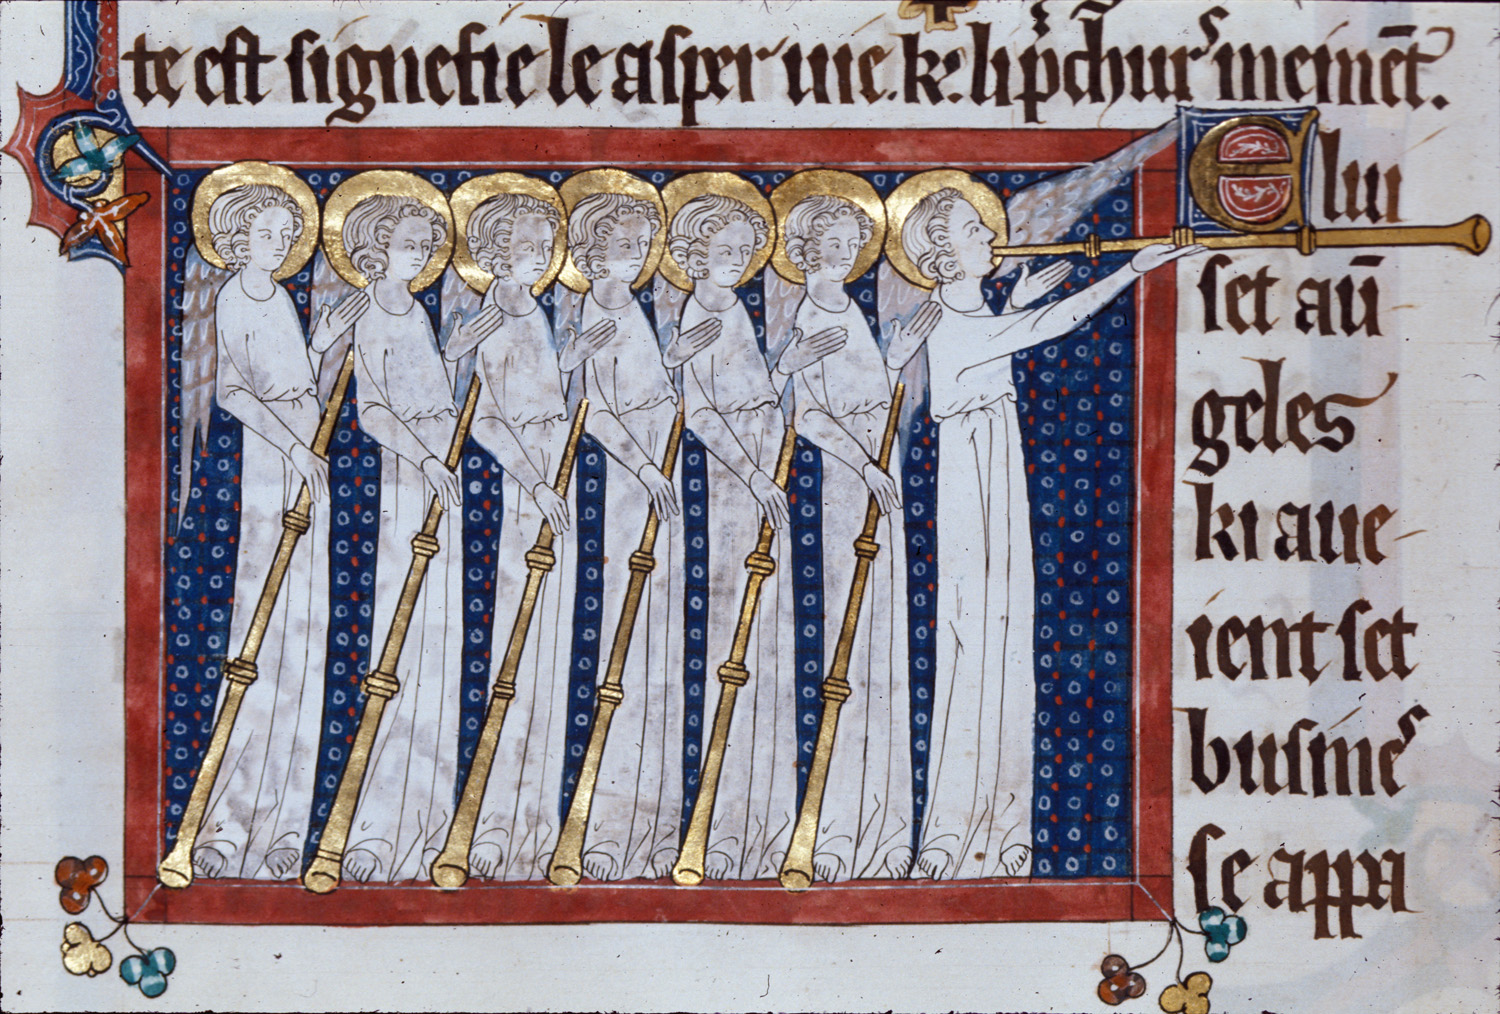 te est signefie le asper uie. k̾. li p̄ch̄urᷤ meinēt.
E lui
set aū
geles
ki aue
ient set
busineᷤ
se appa